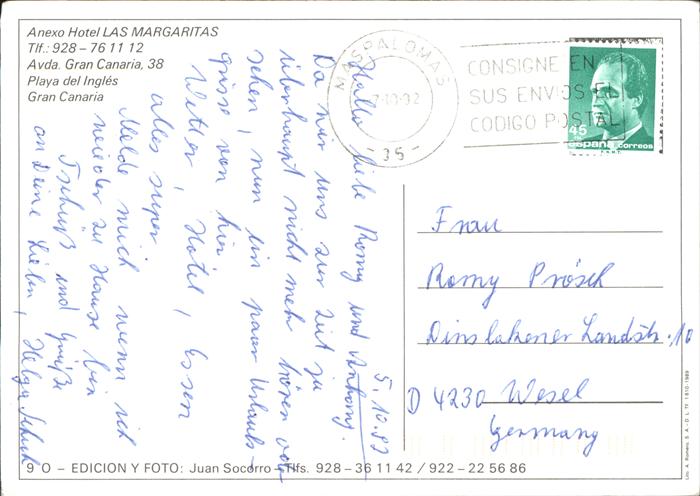 Anexo Hotel LAS MARGARITAS
Tlf.: 928 - 76 11 12
Avda. Gran Canaria, 38
Playa del Inglés
Gran Canaria
MASPALOMAS
7-10-92
- 35 -
CONSIGNE EN
SUS ENVIOS EL
CODIGO POSTAL
45
españa correos
F.N.M.T.
5.10.92
Hallo liebe Romy und Anthony.
Da wir uns zur Zeit ja
überhaupt nicht mehr hören oder
sehen, nun ein paar Urlaubs-
grüsse von hier.
Wetter, Hotel, Essen
alles super
Melde mich wenn ich
wieder zu Hause bin
Tschüß und Grüße
an Deine Lieben, Helga
Frau
Romy Prösch
Dinslakener Landstr. 10
D 4230 Wesel
Germany
9 O - EDICION Y FOTO: Juan Socorro - Tlfs. 928 - 36 11 42 / 922 - 22 56 86
Lit. A. Romero, S. A. - D. L. TF. 1610-1989